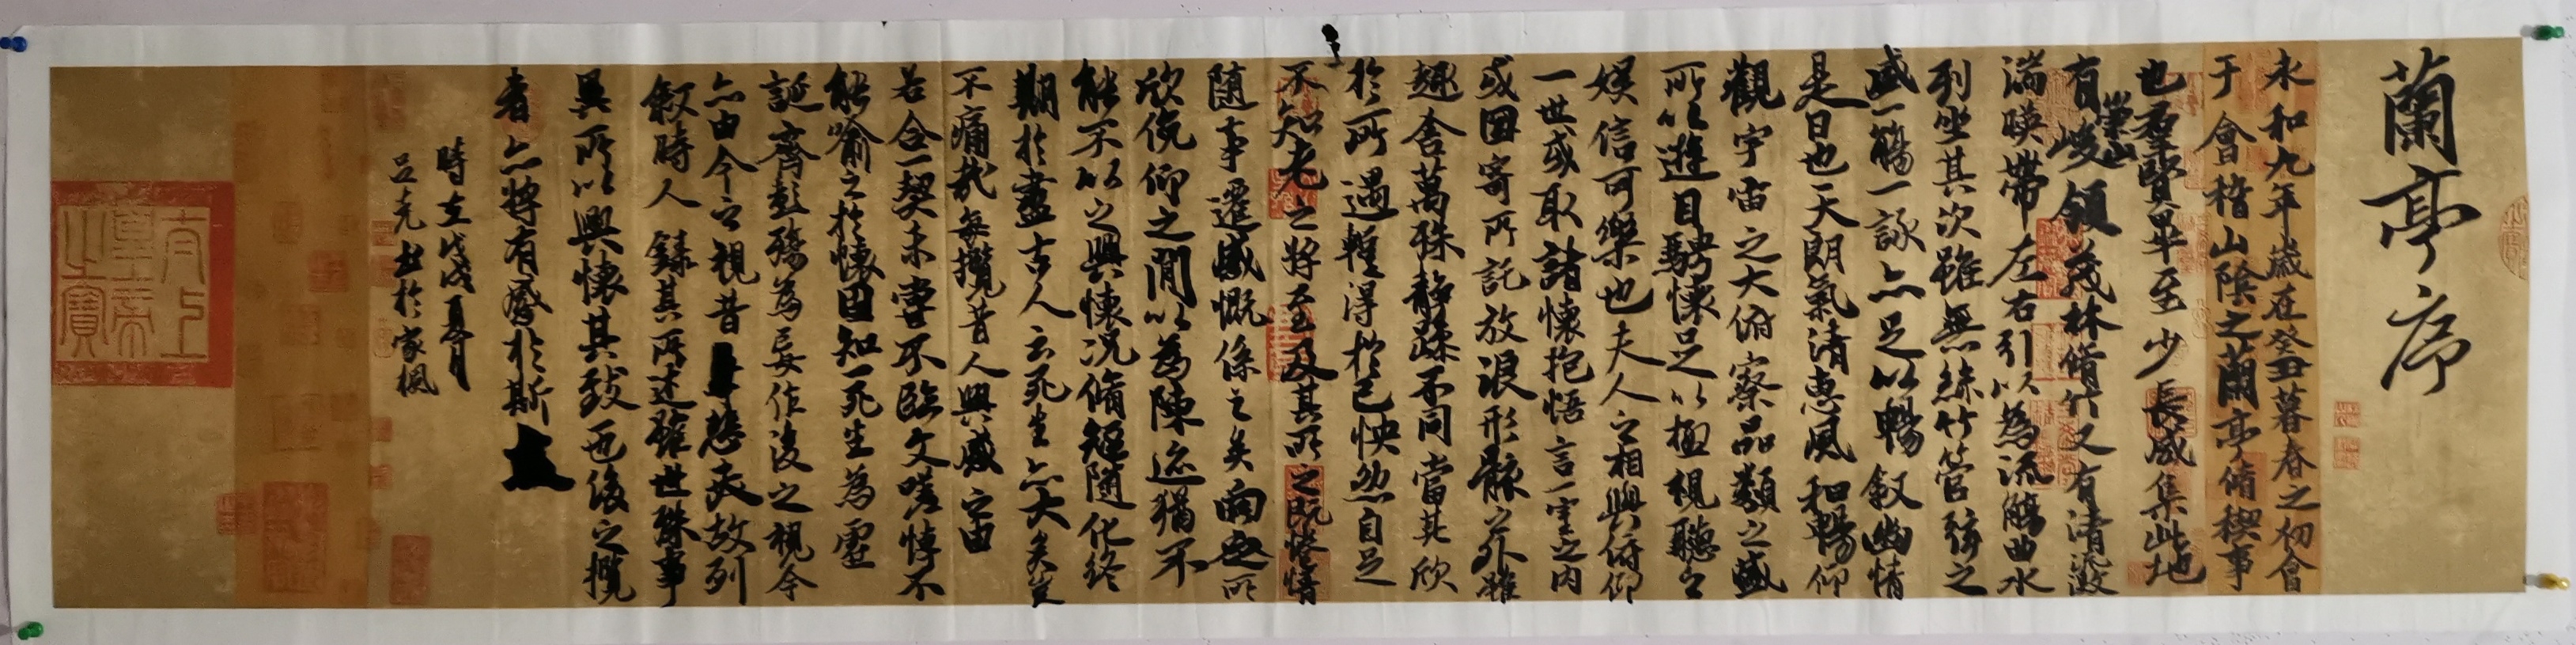 蘭亭序
永和九年歲在癸丑暮春之初會
于會稽山陰之蘭亭脩稧事
也羣賢畢至少長咸集此地
有崇山峻領茂林脩竹又有清流激
湍暎帶左右引以為流觴曲水
列坐其次雖無絲竹管弦之
盛一觴一詠亦足以暢敘幽情
是日也天朗氣清惠風和暢仰
觀宇宙之大俯察品類之盛
所以遊目騁懷足以極視聽之
娛信可樂也夫人之相與俯仰
一世或取諸懷抱悟言一室之內
或因寄所託放浪形骸之外雖
趣舍萬殊静躁不同當其欣
於所遇暫得於己怏然自足
不知老之將至及其所之既惓情
隨事遷感慨係之矣向之所
欣俛仰之閒以為陳迹猶不
能不以之興懷況脩短隨化終
期於盡古人云死生亦大矣豈
不痛哉每攬昔人興感之由
若合一契未嘗不臨文嗟悼不
能喻之於懷固知一死生為虛
誕齊彭殤為妄作後之視今
亦由今之視昔悲夫故列
敘時人錄其所述雖世殊事
異所以興懷其致一也後之攬
者亦將有感於斯文
時在戊戌夏月
呂克 於家楓
太上
皇帝
之寶